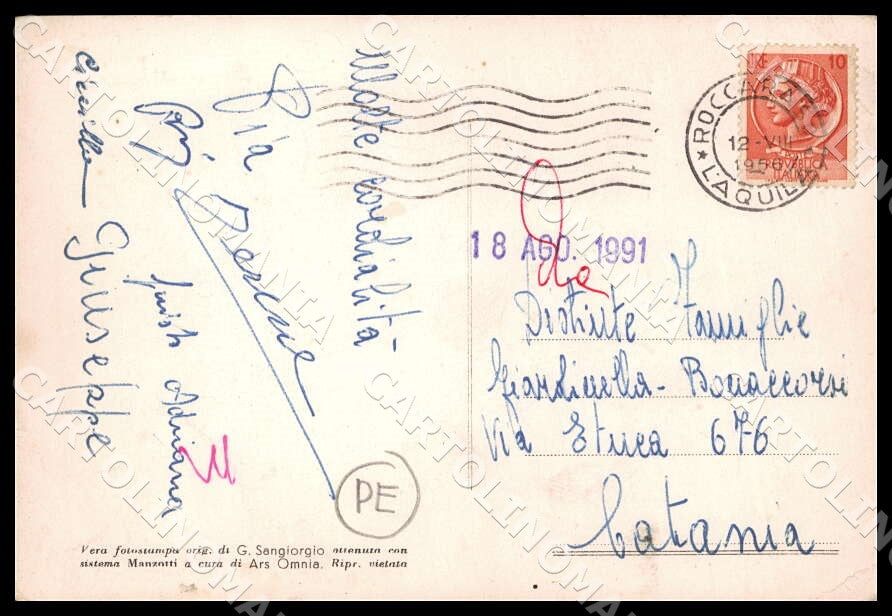 Molte cordialità
Pia
Giuseppe
Adriana
PE
Vera fotostampa orig. di G. Sangiorgio ottenuta con
sistema Manzotti a cura di Ars Omnia. Ripr. vietata
10
ROCCARASO
12-VIII
1956
L'AQUILA
REPUBBLICA
ITALIANA
18 AGO. 1991
Distinte Famiglie
Giardinella - Bonaccorsi
Via Etnea 676
Catania
CARTOLINOMANIA